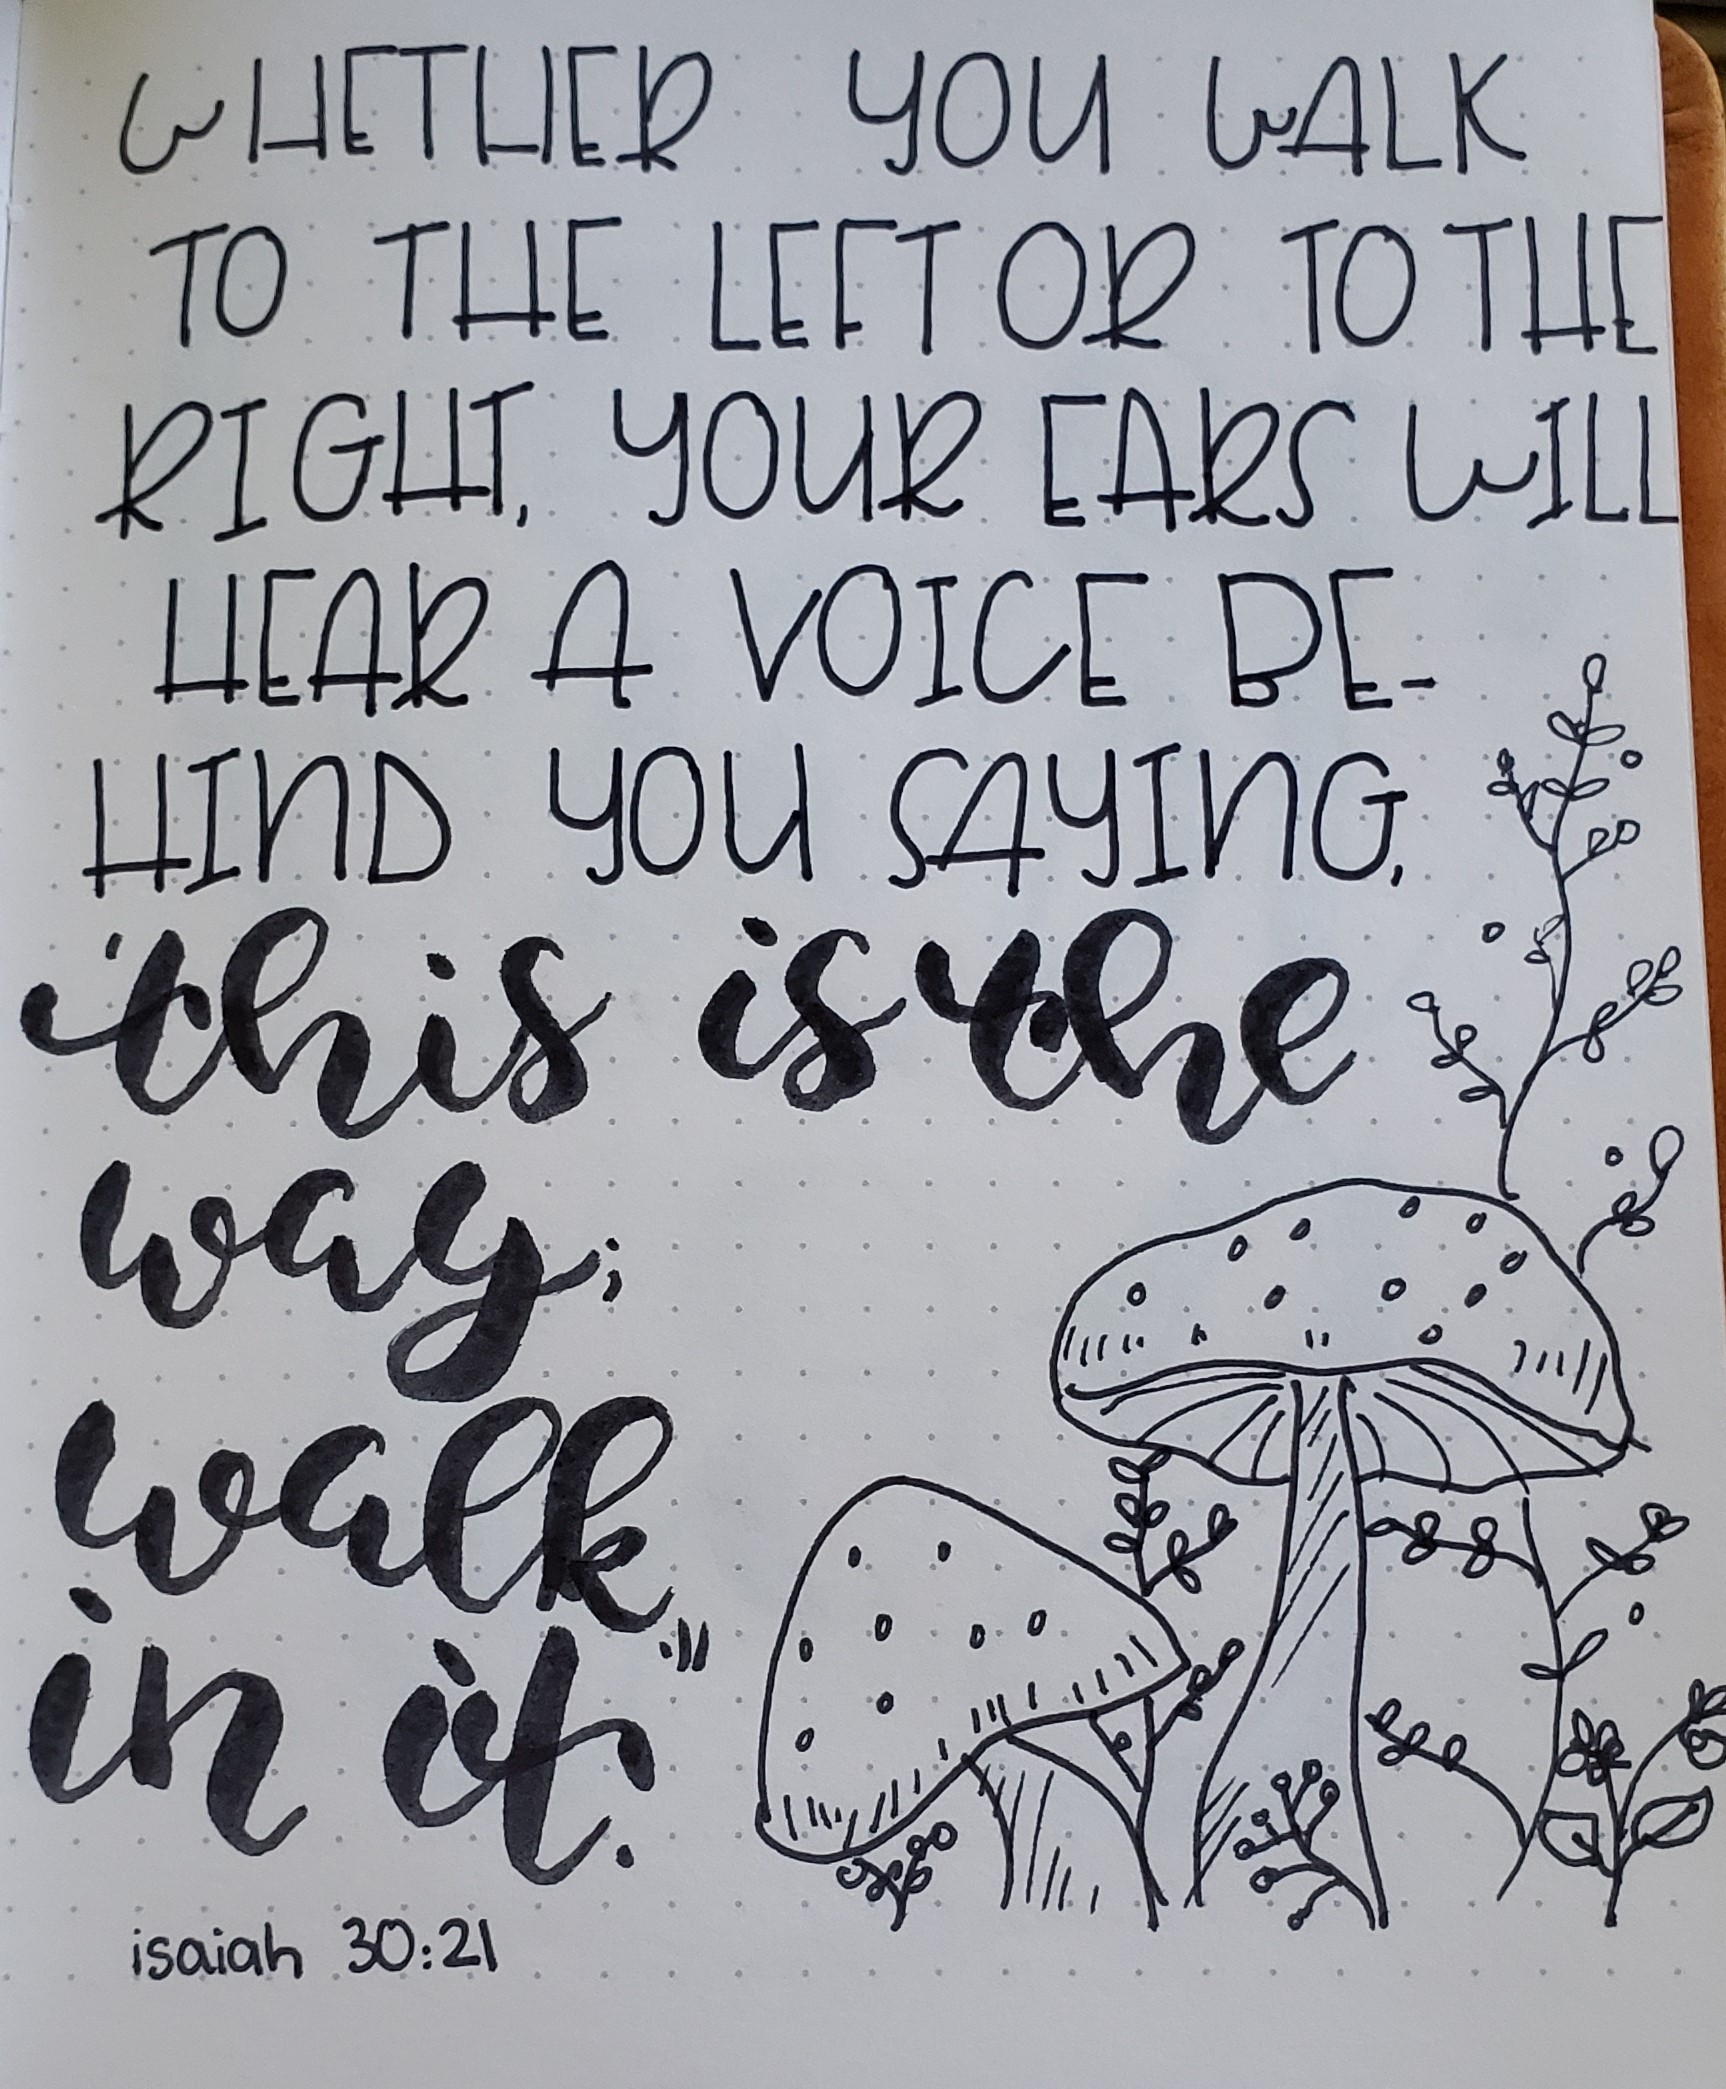 WHETHER YOU WALK
TO THE LEFT OR TO THE
RIGHT, YOUR EARS WILL
HEAR A VOICE BE-
HIND YOU SAYING,
"this is the
way;
walk
in it."
isaiah 30:21